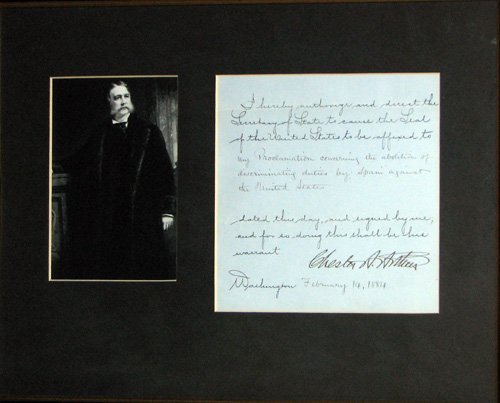 I hereby authorize and direct the
Secretary of State to cause the Seal
of the United States to be affixed to
my Proclamation concerning the abolition of
discriminating duties by Spain against
the United States
dated this day, and signed by me;
and for so doing this shall be his
warrant
Chester A. Arthur
Washington February 14, 1884